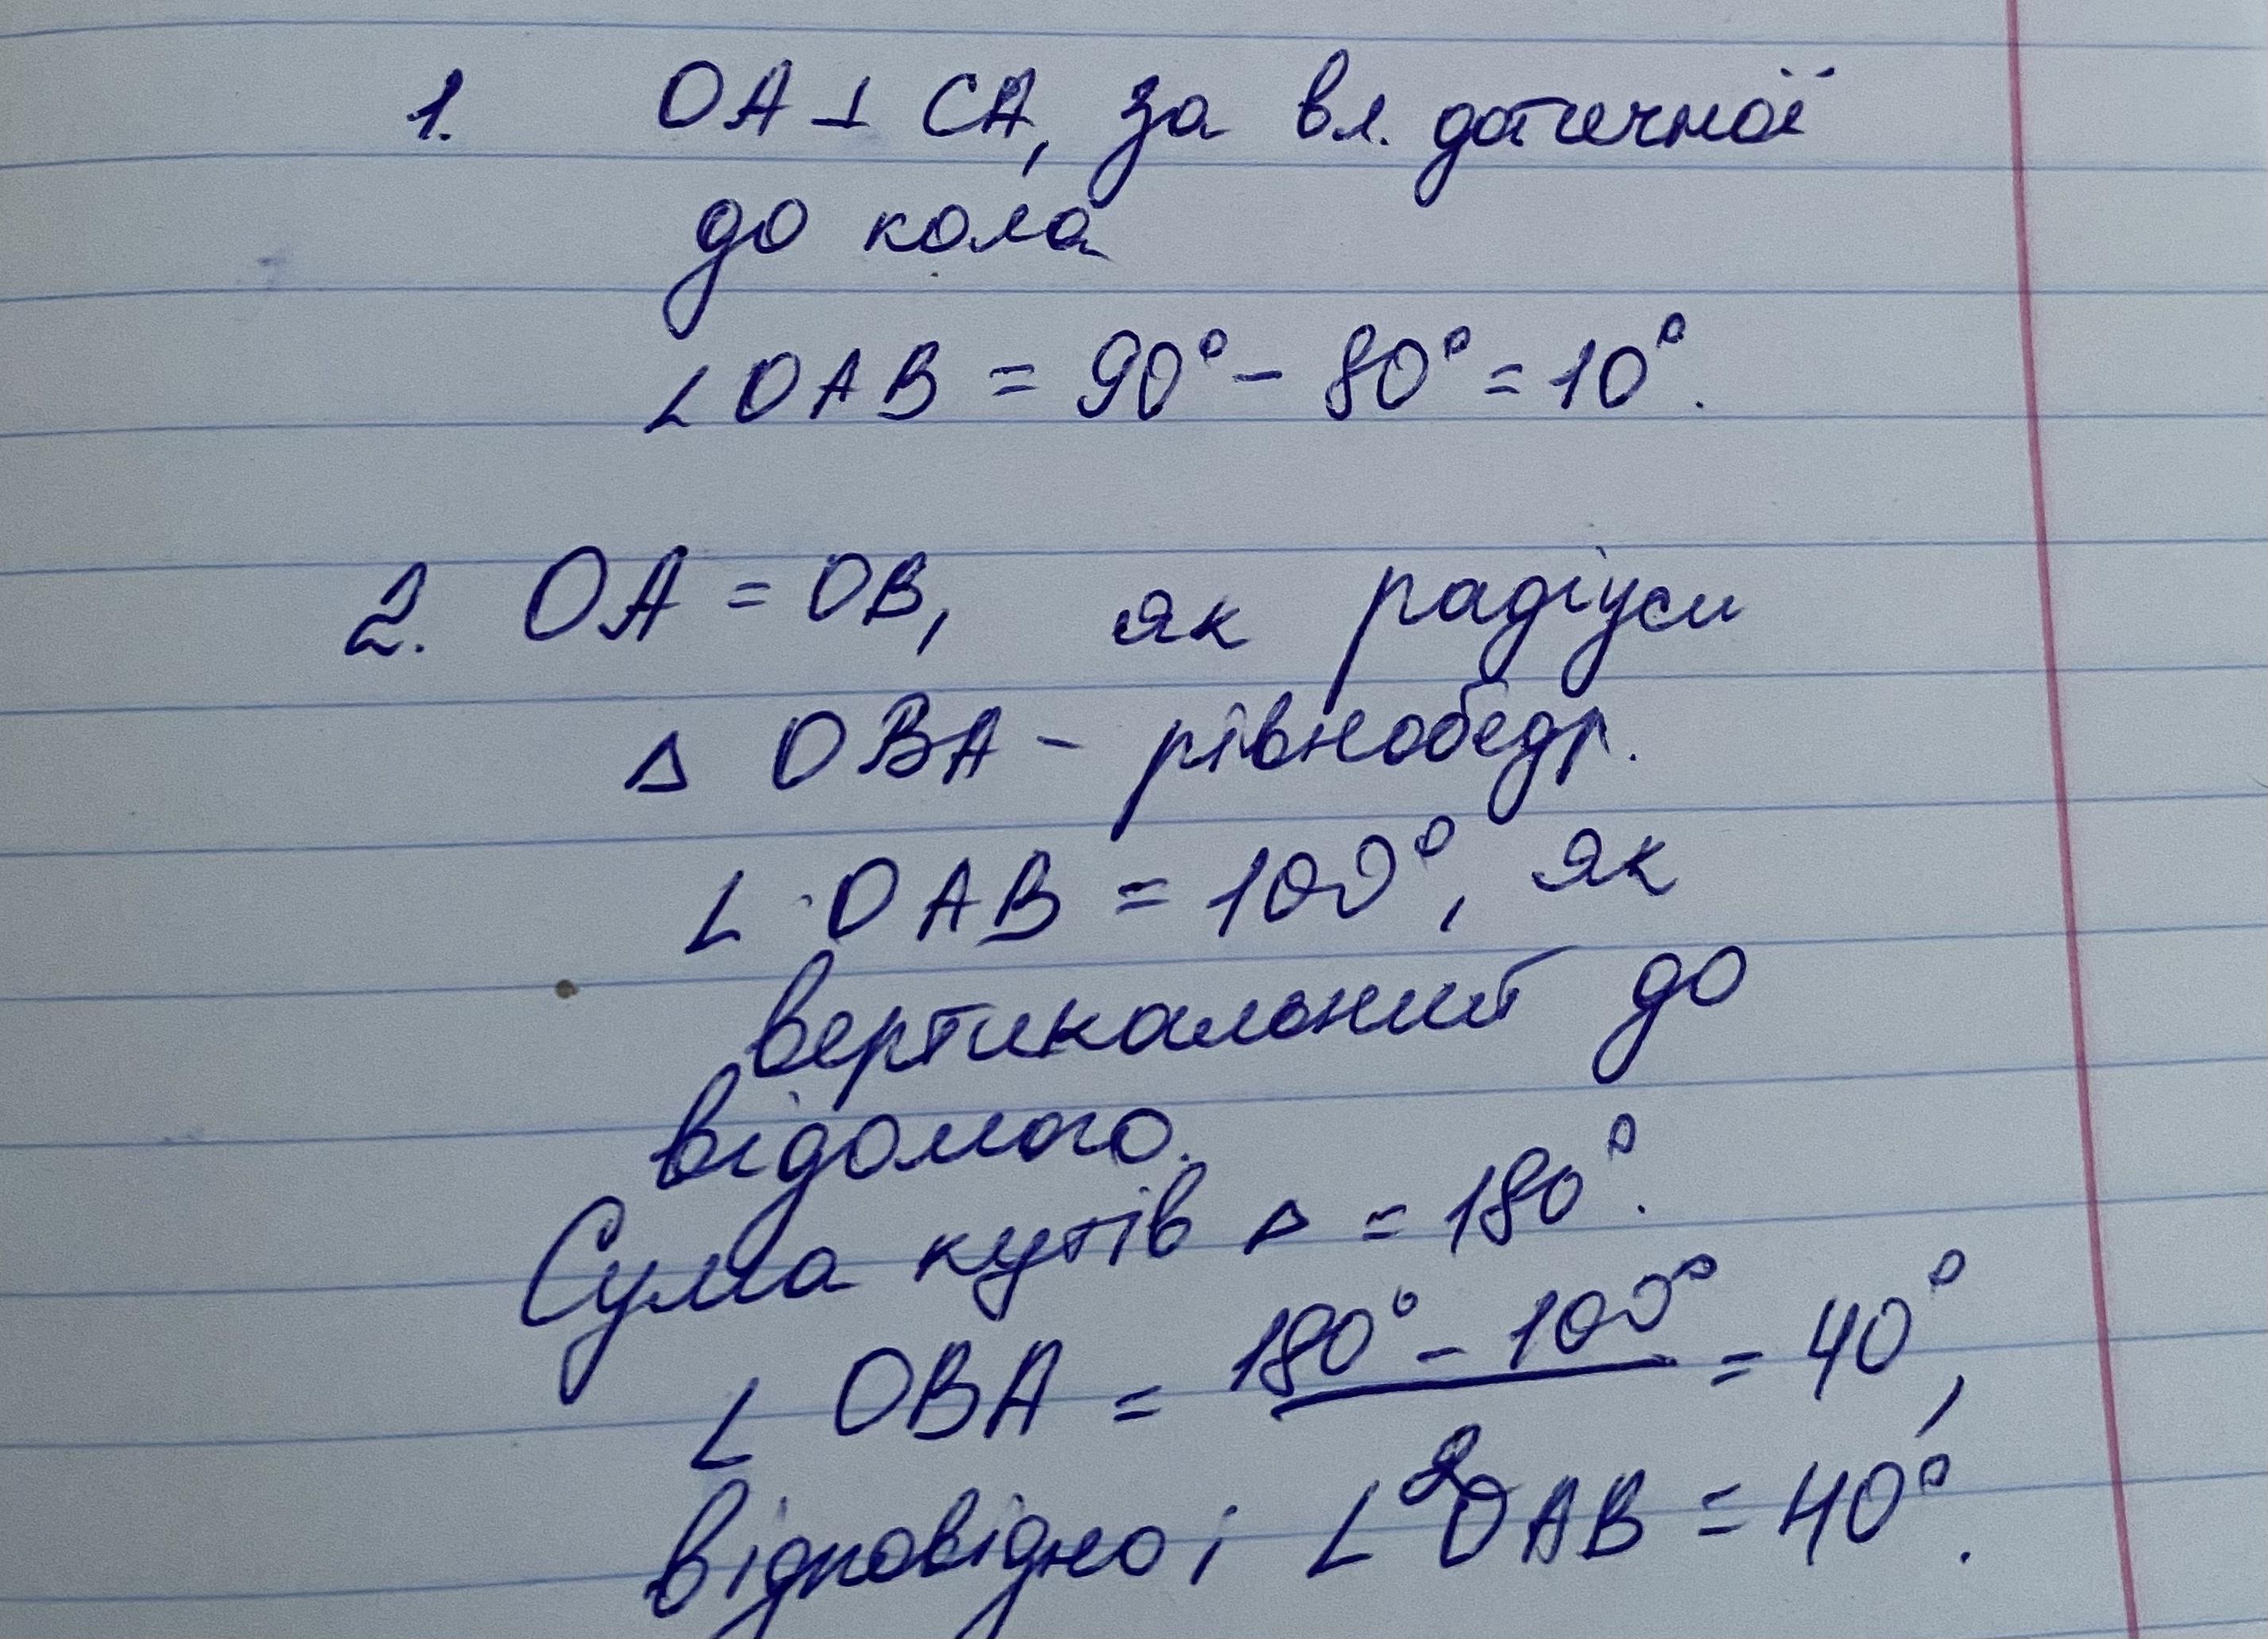 1. OA ⊥ CA, за вл. дотичної
до кола
∠OAB = 90° - 80° = 10°.
2. OA = OB, як радіуси
△ OBA - рівнобедр.
∠ OAB = 100°, як
вертикальний до
відомого.
Сума кутів △ = 180°.
∠ OBA = (180° - 100°)/2 = 40°,
відповідно і ∠ OAB = 40°.